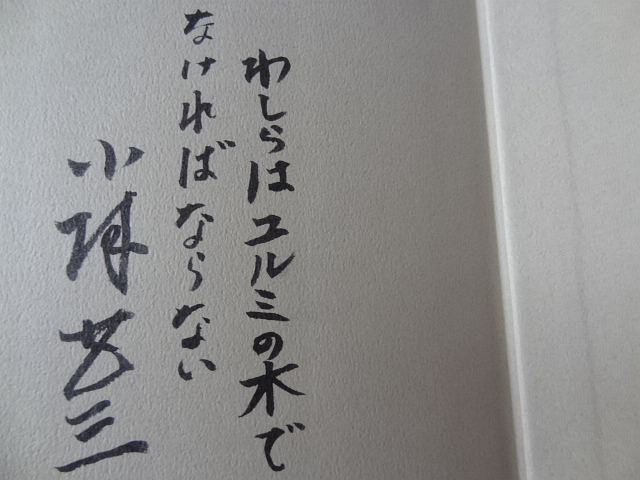 わしらはエルミの木で
なければならない
小林芳三